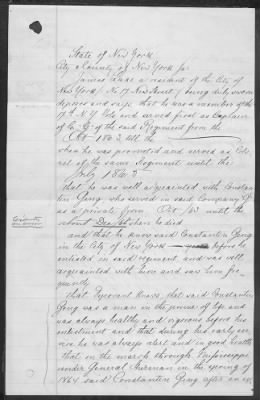 State of New York
City & County of New York Ss
James Lake a resident of the City of
New York (No 17 New Street) being duly sworn
deposes and says that he was a member of the
17th N.Y. Vols and served first as Captain
of Co. G. of the said Regiment from the
Oct 1863 till the
when he was promoted and served as Colo
nel of the same Regiment until the
July 1865
that he was well acquainted with Constan
tine Ging who served in said Company G
as a private from Oct 63 until the
about December he died
and that he knew said Constantine Ging
in the City of New York before he
enlisted in said regiment and was well
acquainted with him and saw him fre
quently
that Deponent knows that said Constantine
Ging was a man in the prime of life and
was always healthy and vigorous before his
enlistment and that during his early ser
vice he was always alert and in good health
that on the march through Mississippi
under General Sherman in the spring of
1864 said Constantine Ging after an ex